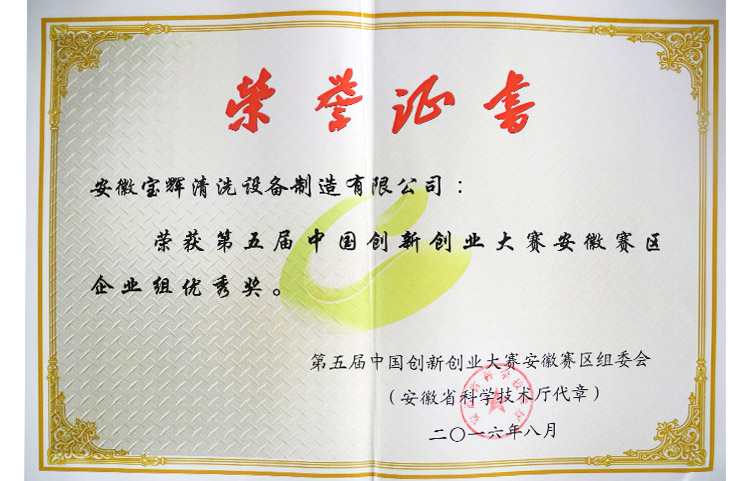 荣誉证书
安徽宝辉清洗设备制造有限公司：
荣获第五届中国创新创业大赛安徽赛区
企业组优秀奖。
第五届中国创新创业大赛安徽赛区组委会
（安徽省科学技术厅代章）
二〇一六年八月